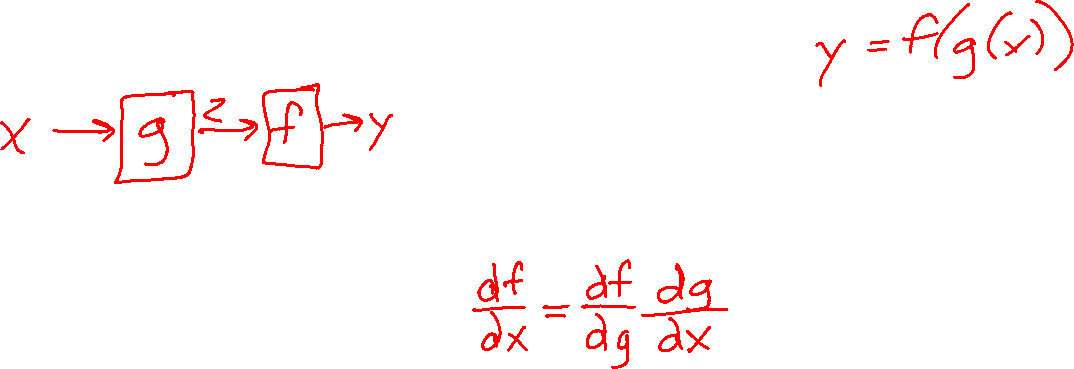 y = f(g(x))
x → g z → f → y
df/dx = df/dg dg/dx